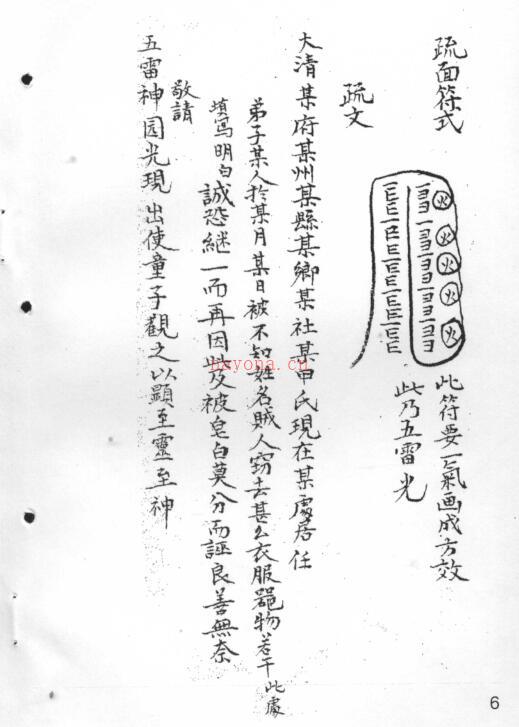 疏面符式
火
火
火
火
火
此符要一氣画成方效
此乃五雷光
疏文
大清某府某州某縣某鄉某社某甲氏現在某處居住
弟子某人於某月某日被不知姓名賊人竊去甚么衣服器物若干此處
填寫明白誠恐継一而再因此及被皂白莫分而誣良善無奈
敬請
五雷神园光現出使童子觀之以顯至靈至神
hxyona.cn
6